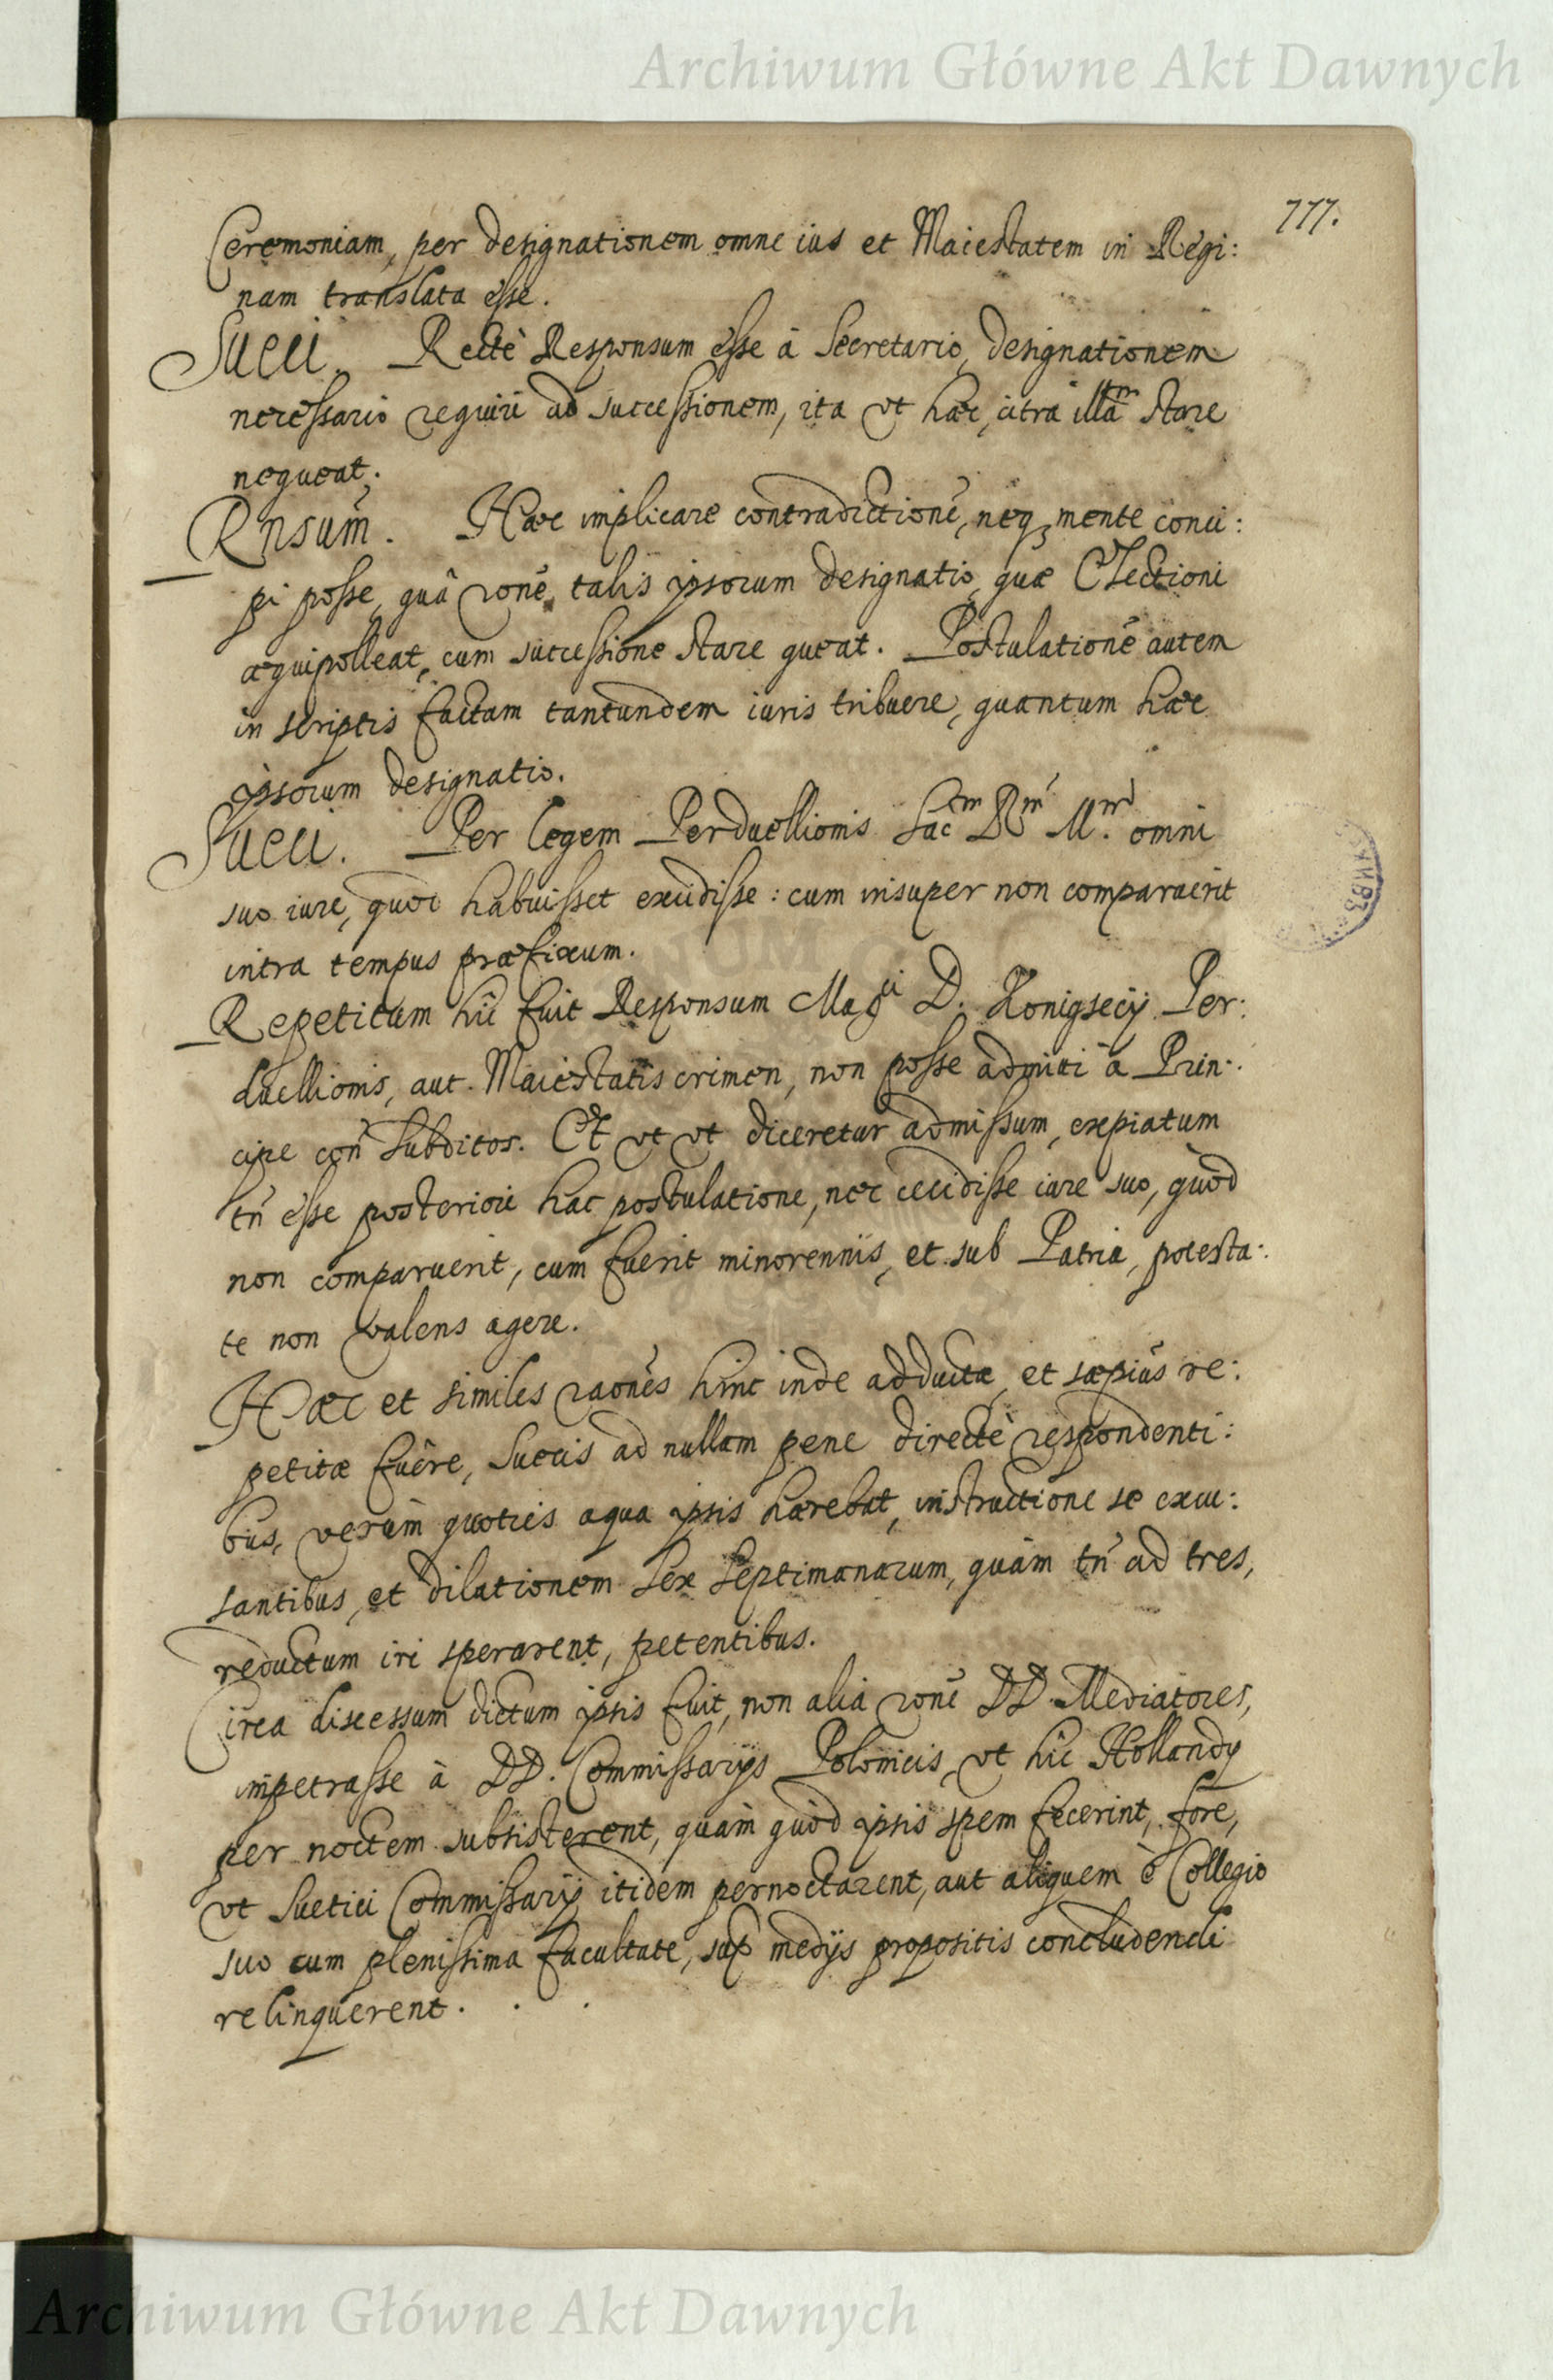 Archiwum Główne Akt Dawnych
777.
Ceremoniam, per designationem omne ius et Maiestatem in Regi:
nam translata esse.
Sueci. Rectè Responsum esse à Secretario, designationem
necessario requiri ad successionem, ita vt haec, citra illãm stare
nequeat.
Rnsum̃. Haec implicare contradictionẽ, neq3 mente conci:
pi posse, quâ rone, talis ipsorum designatio, quae Electioni
aequipolleat, cum successione stare queat. Postulationẽ autem
in scriptis factam tantundem iuris tribuere, quantum haec
ipsorum designatio.
Sueci. Per legem Perduellionis Sacm Rm Mm omni
suo iure, quod habuisset excidisse: cum insuper non comparuerit
intra tempus praefixum.
Repetitum hic fuit Responsum Magci D. Konigsecij Per:
duellionis, aut Maiestatis crimen, non posse admitti à Prin:
cipe con̄ Subditos. Et vt vt diceretur admissum, expiatum
tn̄ esse posteriori hac postulatione, nec cecidisse iure suo, quòd
non comparuerit, cum fuerit minorennis, et sub Patria, potesta:
te non valens agere.
Haec et similes raones hinc inde adductae, et saepiùs re:
petitae fuêre, Suecis ad nullam pene directè respondenti:
bus, verùm quoties aqua ipsis haerebat, instructione se excu:
santibus, et dilationem sex septimanarum, quàm tn̄ ad tres,
reductum iri sperarent, petentibus.
Circa discessum dictum ipsis fuit, non alia rone DD. Mediatores,
impetrasse à DD. Commissarijs Polonicis, vt hic Hollandi
per noctem subsisterent, quàm quòd ipsis spem fecerint, fore,
vt Suetici Commissarij itidem pernoctarent, aut aliquem è Collegio
suo cum plenissima facultate, sup medijs propositis concludendi
relinquerent.
Archiwum Główne Akt Dawnych